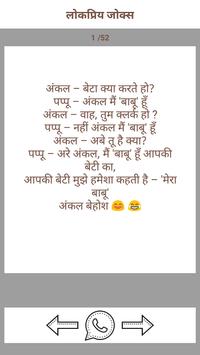 लोकप्रिय जोक्स
1 /52
अंकल – बेटा क्या करते हो?
पप्पू – अंकल मैं 'बाबू' हूँ
अंकल – वाह, तुम क्लर्क हो ?
पप्पू – नहीं अंकल मैं 'बाबू' हूँ
अंकल – अबे तू है क्या?
पप्पू – अरे अंकल, मैं 'बाबू' हूँ आपकी
बेटी का,
आपकी बेटी मुझे हमेशा कहती है – 'मेरा
बाबू'
अंकल बेहोश 😊 😂